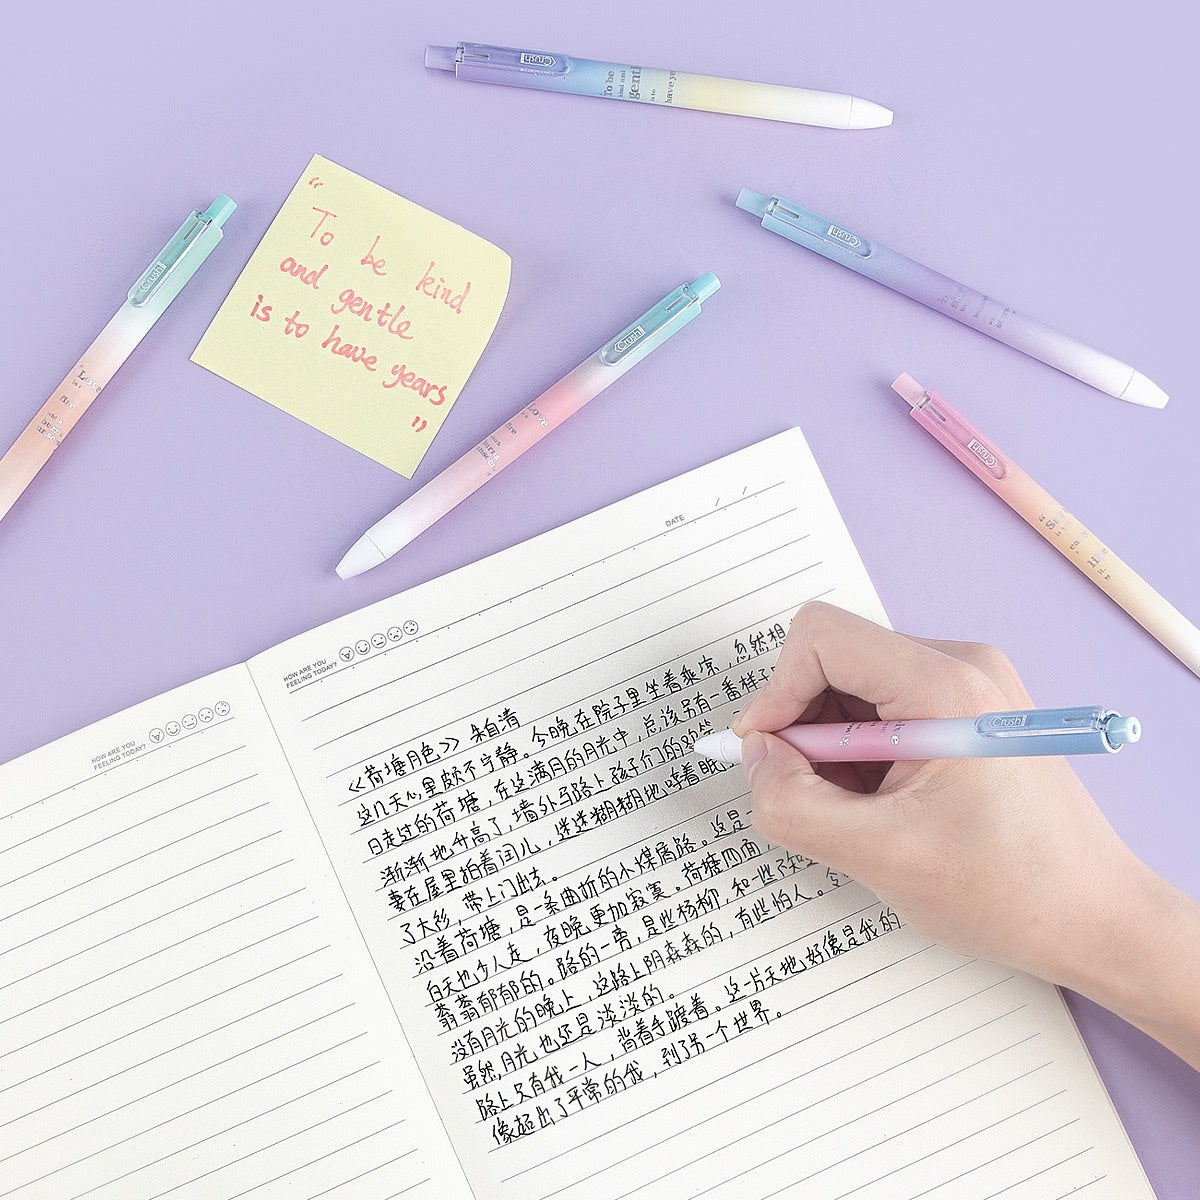 Crush
To be
kind and
gentl
is to
have ye
“
To be kind
and gentle
is to have years
”
Crush
Crush
Crush
Love
is a
fire
Crush
Love
DATE / /
HOW ARE YOU
FEELING TODAY?
HOW ARE YOU
FEELING TODAY?
《荷塘月色》 朱自清
这几天心里颇不宁静。今晚在院子里坐着乘凉，忽然想
日走过的荷塘，在这满月的光中，总该另有一番样子
渐渐地升高了，墙外马路上孩子们的欢笑
妻在屋里拍着闰儿，迷迷糊糊地哼着眠
了大衫，带上门出去。
沿着荷塘，是一条曲折的小煤屑路。这是一
白天也少人走，夜晚更加寂寞。荷塘四面，
蓊蓊郁郁的。路的一旁，是些杨柳，和一些不知
没有月光的晚上，这路上阴森森的，有些怕人。今
虽然月光也还是淡淡的。
路上只有我一人，背着手踱着。这一片天地好像是我的
像超出了平常的我，到了另一个世界。
Crush
“
is
life
it.
”